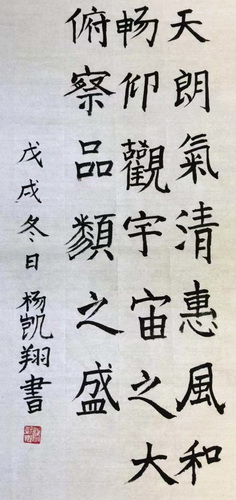 天朗氣清惠風和
畅仰觀宇宙之大
俯察品類之盛
戊戌冬日杨凯翔書